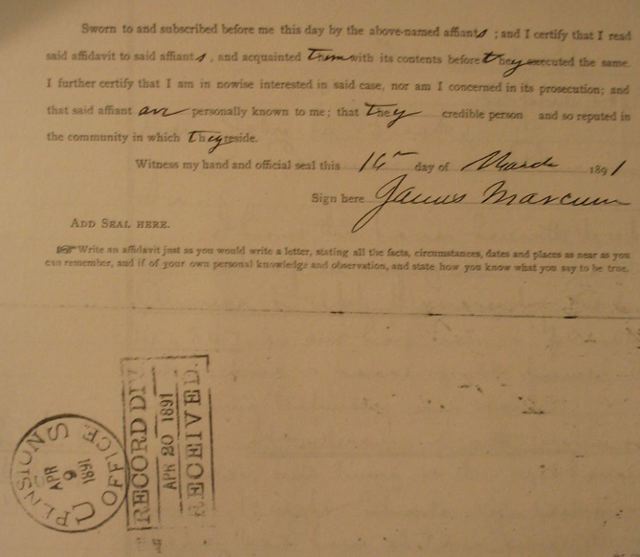 Sworn to and subscribed before me this day by the above-named affiants ; and I certify that I read
said affidavit to said affiants , and acquainted them with its contents before they executed the same.
I further certify that I am in nowise interested in said case, nor am I concerned in its prosecution; and
that said affiant are personally known to me; that they credible person and so reputed in
the community in which they reside.
Witness my hand and official seal this 16th day of March 1891
Sign here James Marcum
ADD SEAL HERE.
☞ Write an affidavit just as you would write a letter, stating all the facts, circumstances, dates and places as near as you
can remember, and if of your own personal knowledge and observation, and state how you know what you say to be true.
RECORD DIV
APR 20 1891
RECEIVED.
U S PENSION OFFICE
APR
9
1891